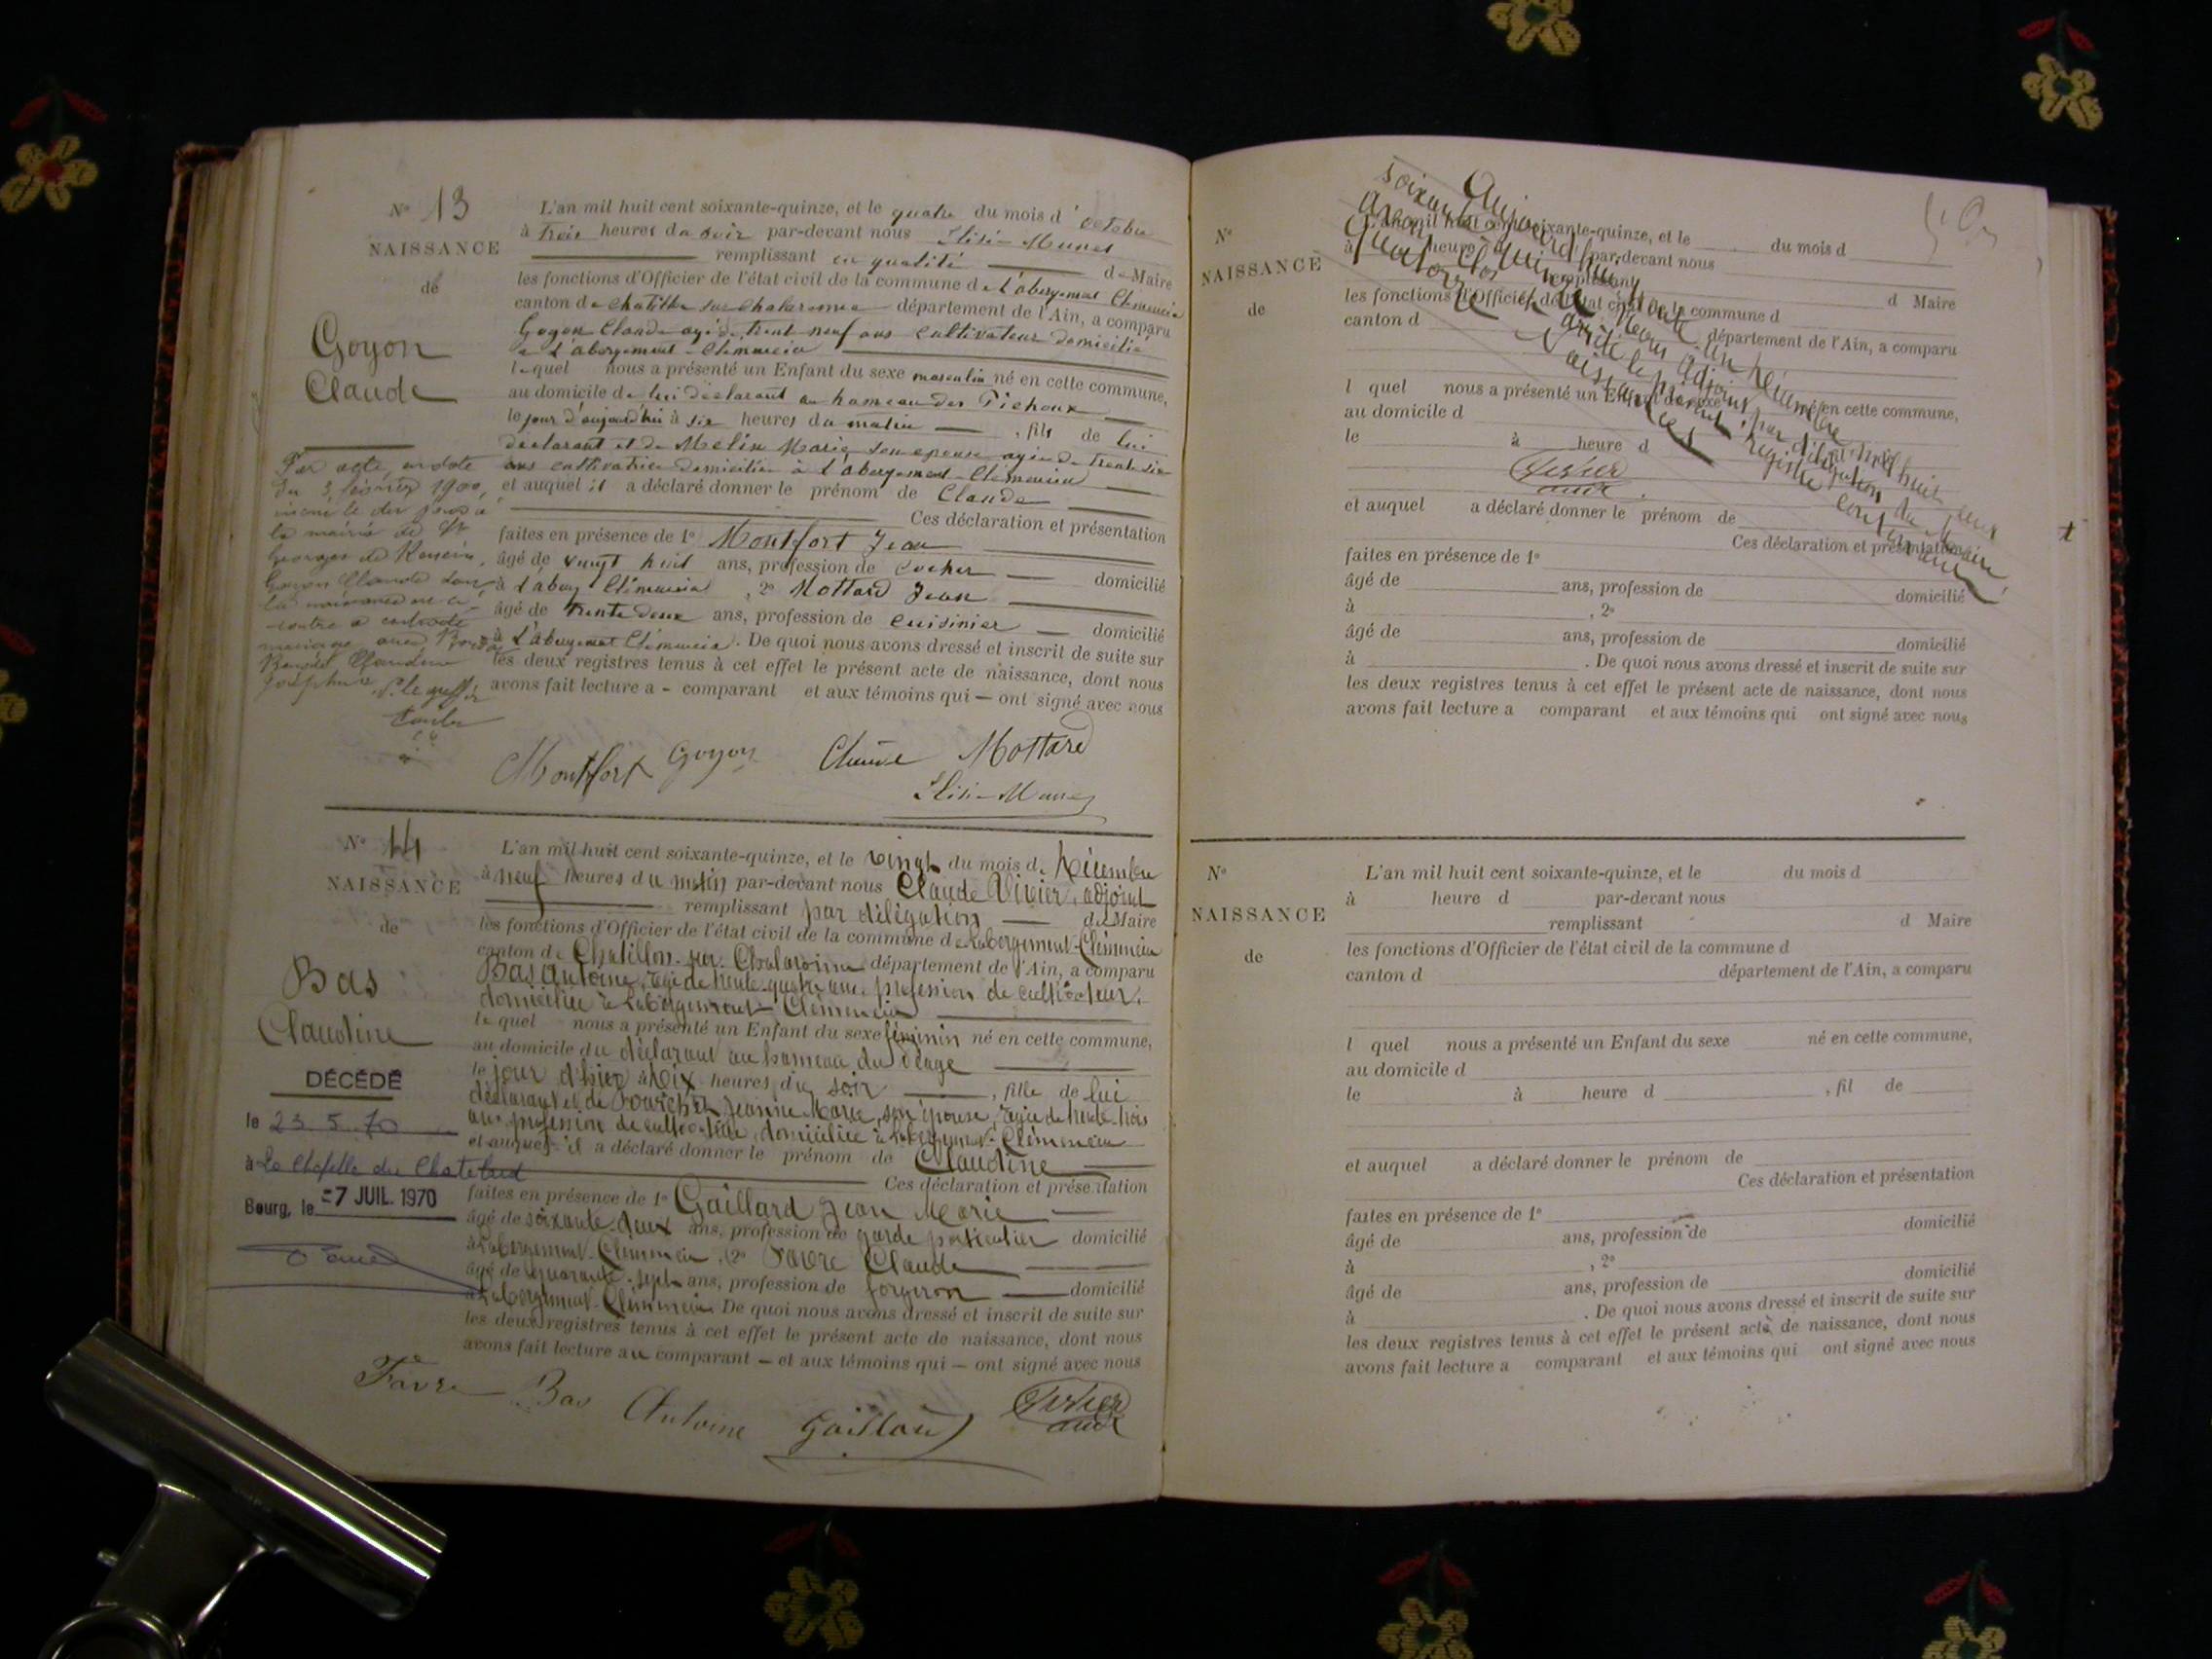 N° 13
NAISSANCE
de
Goyon
Claude
L'an mil huit cent soixante-quinze, et le quatre du mois d'octobre
à trois heures du soir par-devant nous Elisé Munet
remplissant en qualité de Maire
les fonctions d'Officier de l'état civil de la commune de L'abergement Clémencia
canton de Chatillon sur Chalaronne département de l'Ain, a comparu
Goyon Claude agé de trente neuf ans cultivateur domicilié
à L'abergement-Clémencia
lequel nous a présenté un Enfant du sexe masculin né en cette commune,
au domicile de lui déclarant au hameau des Pichoux
le jour d'aujourd'hui à six heures du matin , fils de lui
déclarant et de Melin Marie son épouse agée de trente six
ans cultivatrice domiciliée à L'abergement-Clémencia
et auquel il a déclaré donner le prénom de Claude
Ces déclaration et présentation
faites en présence de 1° Montfort Jean
âgé de vingt huit ans, profession de cocher domicilié
à L'aberg^t Clémencia , 2° Mottard Jean
âgé de trente deux ans, profession de cuisinier domicilié
à L'abergement Clémencia. De quoi nous avons dressé et inscrit de suite sur
les deux registres tenus à cet effet le présent acte de naissance, dont nous
avons fait lecture a - comparant et aux témoins qui — ont signé avec nous
Par acte, en date
du 3 février 1900,
la mairie de St
Georges de Reneins,
Goyon Claude dont
la naissance est ci-
contre a contracté
mariage avec
Benoîte Claudine
Joséphine. P. le greffier
Montfort Goyon Claude Mottard
Elisé Munet
N° 14
NAISSANCE
de
Bas
Claudine
L'an mil huit cent soixante-quinze, et le vingt du mois de Décembre
à neuf heures du matin par-devant nous Claude Vivier, adjoint
remplissant par délégation du Maire
les fonctions d'Officier de l'état civil de la commune de Labergement-Clémencia
canton de Chatillon-sur-Chalaronne département de l'Ain, a comparu
Bas Antoine, âgé de trente-quatre ans, profession de cultivateur,
domicilié à Labergement-Clémencia
lequel nous a présenté un Enfant du sexe féminin né en cette commune,
au domicile du déclarant au hameau du
le jour d'hier à dix heures du soir , fille de lui
déclarant et de Jeanne Marie, son épouse, âgée de trente-trois
ans profession de cultivatrice, domiciliée à Labergement-Clémencia
et auquel il a déclaré donner le prénom de Claudine
Ces déclaration et présentation
faites en présence de 1° Gaillard Jean Marie
âgé de soixante-deux ans, profession de garde particulier domicilié
à Labergement-Clémencia , 2° Favre Claude
âgé de quarante-sept ans, profession de forgeron domicilié
à Labergement-Clémencia. De quoi nous avons dressé et inscrit de suite sur
les deux registres tenus à cet effet le présent acte de naissance, dont nous
avons fait lecture au comparant — et aux témoins qui — ont signé avec nous
DÉCÉDÉ
le 23.5.70
à La Chapelle du Chatelard
Bourg, le =7 JUIL. 1970
Favre Bas Antoine Gaillard Vivier
Aujourd'hui trente un décembre mil huit cent
soixante quinze
avons clos
quatorze naissances
Nous adjoint, par délégation du Maire,
arrêté le présent registre contenant
Vivier
N°
NAISSANCE
de
L'an mil huit cent soixante-quinze, et le du mois d
à heure d par-devant nous
remplissant d Maire
les fonctions d'Officier de l'état civil de la commune d
canton d département de l'Ain, a comparu
l quel nous a présenté un Enfant du sexe né en cette commune,
au domicile d
le à heure d
et auquel a déclaré donner le prénom de
Ces déclaration et présentation
faites en présence de 1°
âgé de ans, profession de domicilié
à , 2°
âgé de ans, profession de domicilié
à . De quoi nous avons dressé et inscrit de suite sur
les deux registres tenus à cet effet le présent acte de naissance, dont nous
avons fait lecture a comparant et aux témoins qui ont signé avec nous
N°
NAISSANCE
de
L'an mil huit cent soixante-quinze, et le du mois d
à heure d par-devant nous
remplissant d Maire
les fonctions d'Officier de l'état civil de la commune d
canton d département de l'Ain, a comparu
l quel nous a présenté un Enfant du sexe né en cette commune,
au domicile d
le à heure d , fil de
et auquel a déclaré donner le prénom de
Ces déclaration et présentation
faites en présence de 1°
âgé de ans, profession de domicilié
à , 2°
âgé de ans, profession de domicilié
à . De quoi nous avons dressé et inscrit de suite sur
les deux registres tenus à cet effet le présent acte de naissance, dont nous
avons fait lecture a comparant et aux témoins qui ont signé avec nous